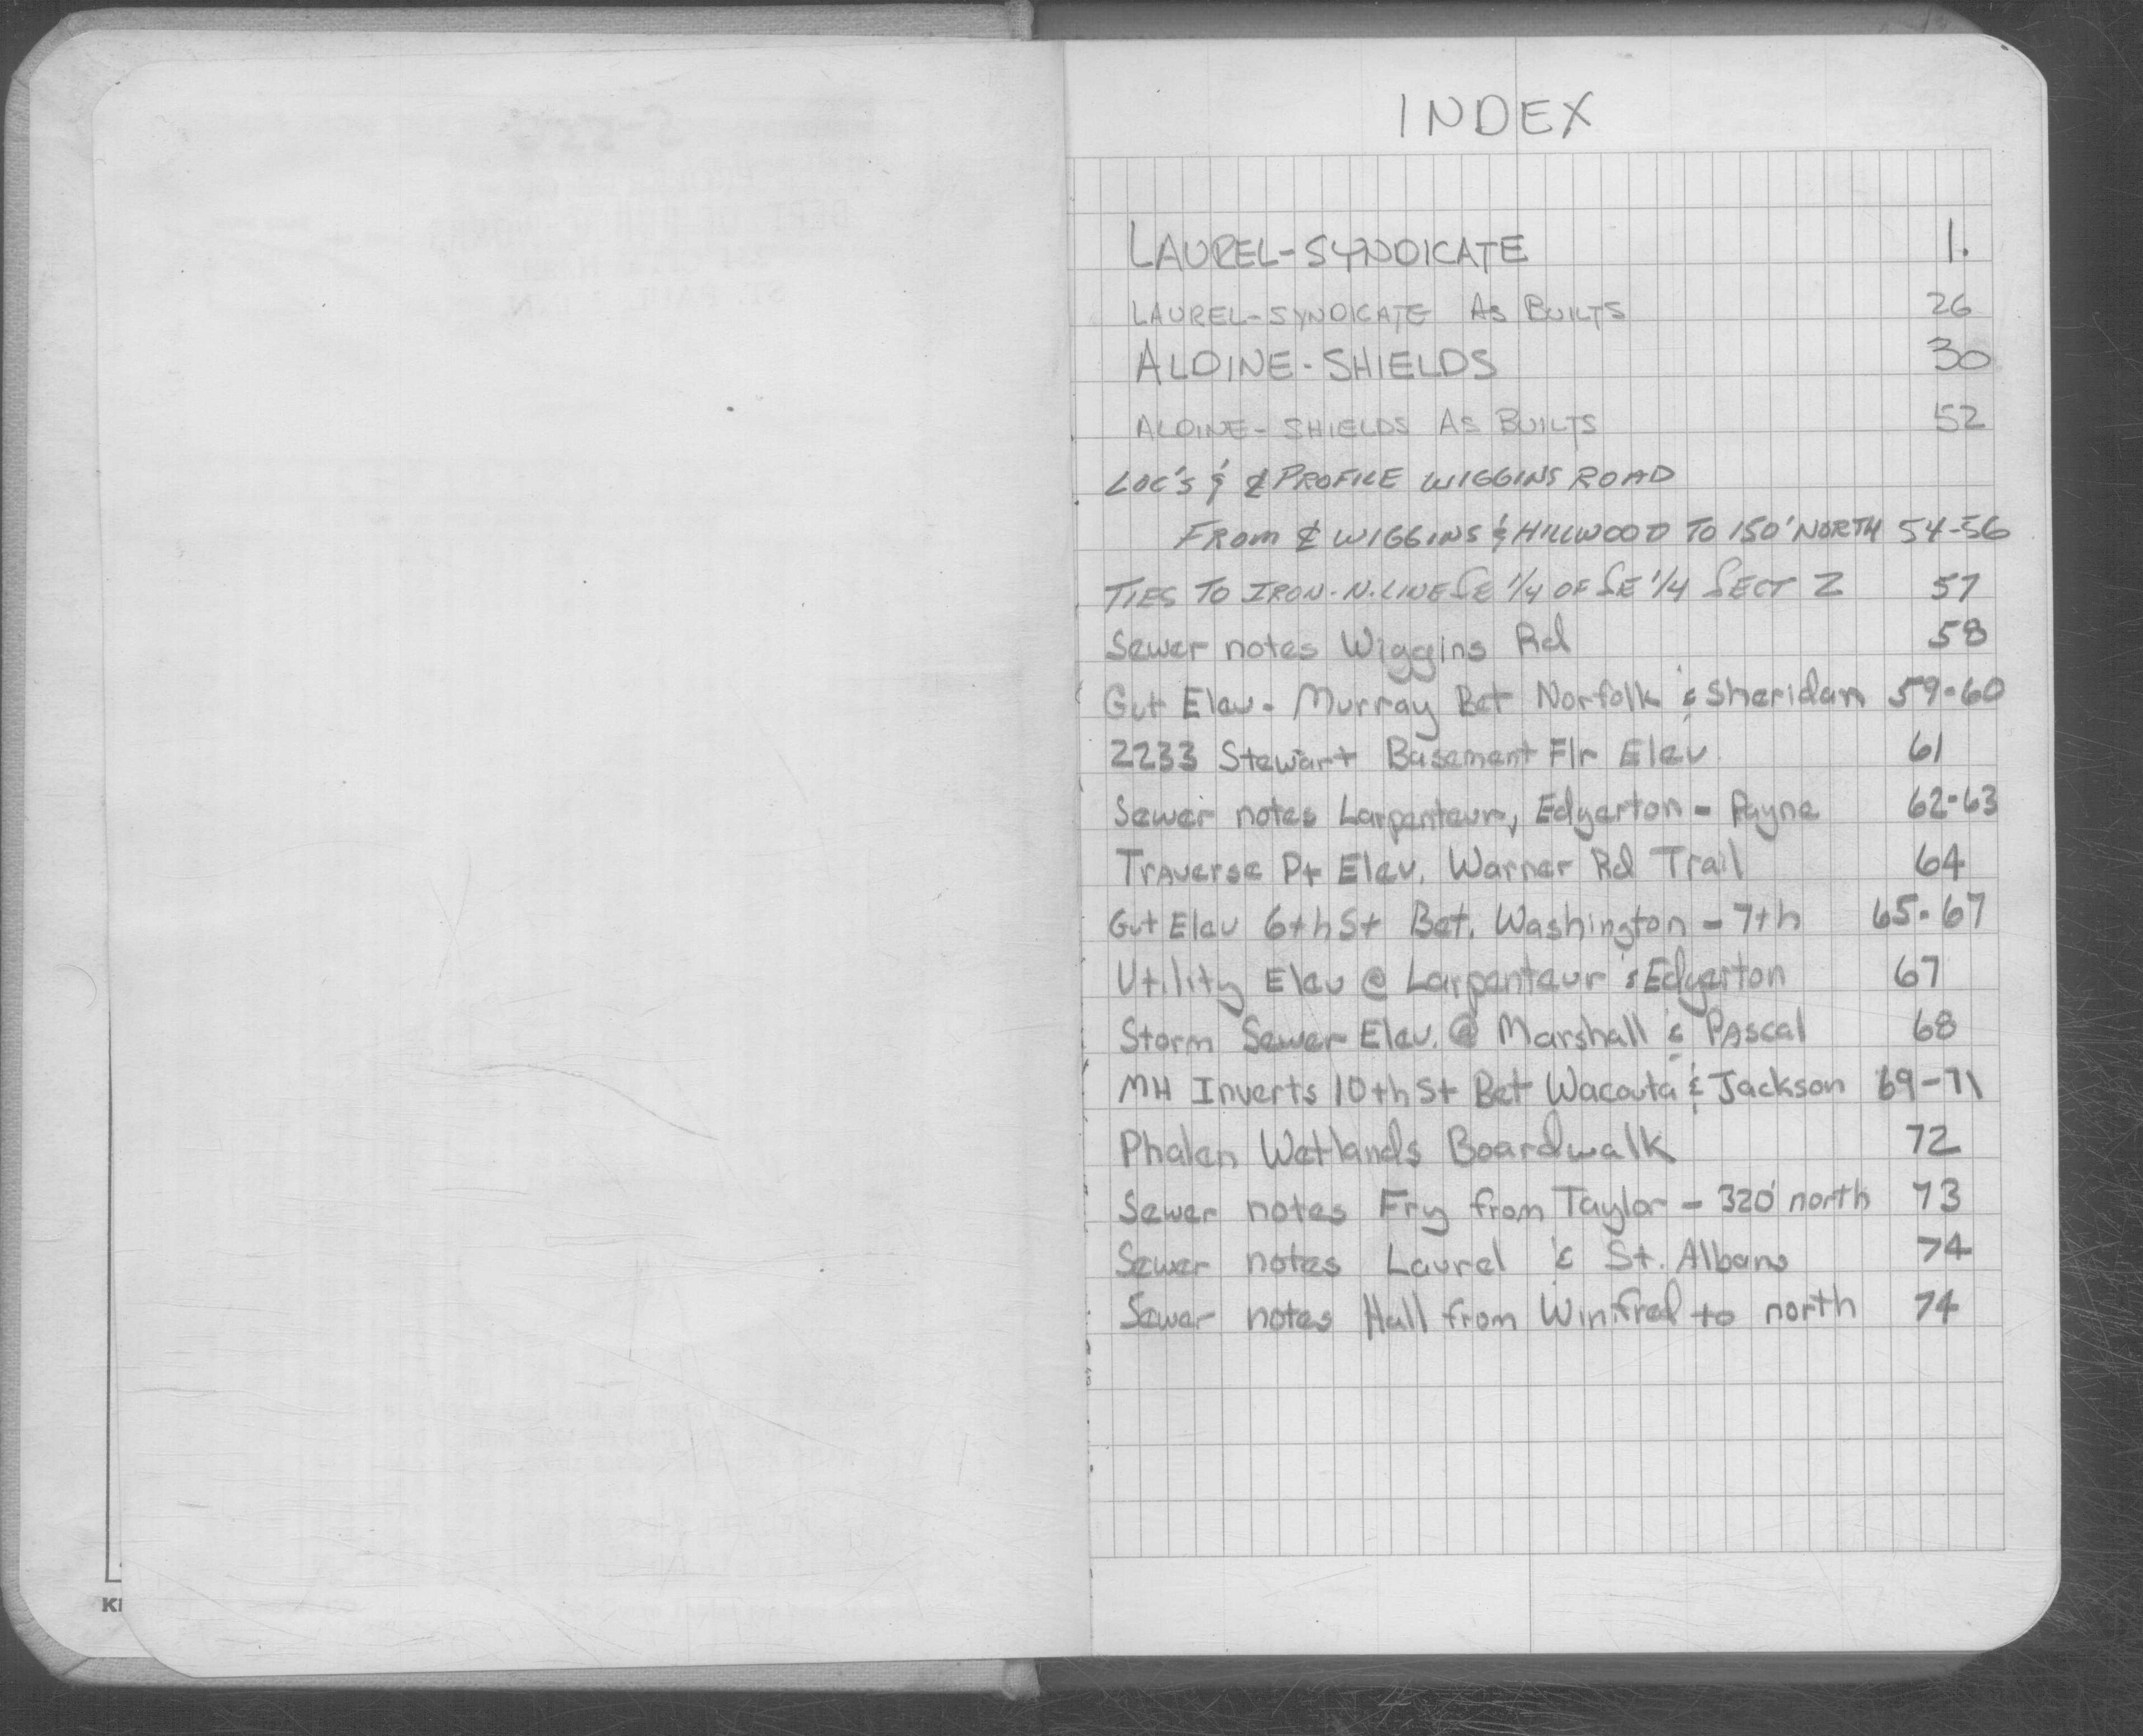 INDEX
LAUREL-SYNDICATE 1.
LAUREL-SYNDICATE AS BUILTS 26
ALDINE-SHIELDS 30
ALDINE-SHIELDS AS BUILTS 52
LOC'S & ℄ PROFILE WIGGINS ROAD
FROM ℄ WIGGINS & HILLWOOD TO 150' NORTH 54-56
TIES TO IRON-N.LINE SE 1/4 OF SE 1/4 SECT 2 57
Sewer notes Wiggins Rd 58
Gut Elev- Murray Bet Norfolk & Sheridan 59-60
2233 Stewart Basement Flr Elev. 61
Sewer notes Larpenteur, Edgerton - Payne 62-63
Traverse Pt Elev. Warner Rd Trail 64
Gut Elev 6th St Bet. Washington - 7th 65-67
Utility Elev @ Larpenteur & Edgerton 67
Storm Sewer Elev. @ Marshall & Pascal 68
MH Inverts 10th St Bet Wacouta & Jackson 69-71
Phalen Wetlands Boardwalk 72
Sewer notes Fry from Taylor - 320' north 73
Sewer notes Laurel & St. Albans 74
Sewer notes Hall from Winifred to north 74